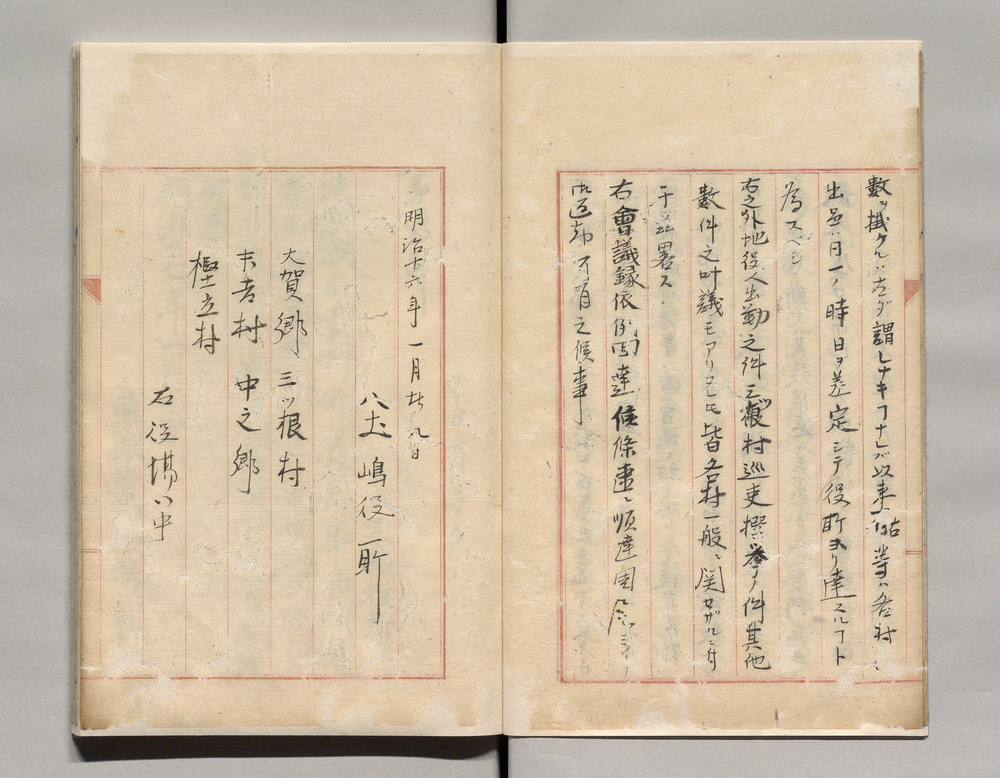 數ヲ掛クルハ尤ダ謂レナキヿナレバ以来 等ハ各村ヨリ
出 日一ノ時日ヲ差定シテ役所ヨリ達スルヿト
為スベシ
右之外地役人出勤之件三ツ根村巡吏撰挙ノ件其他
數件之 議モアリタレ𪜈皆各村一般ニ関セザルニ付
于茲畧ス
右會議録依例回達候條速ニ順達周
返却可有之候事
明治十六年一月廿八日
八丈嶋役所
大賀郷 三ツ根村
末吉村 中之郷
樫立村
右役場御中